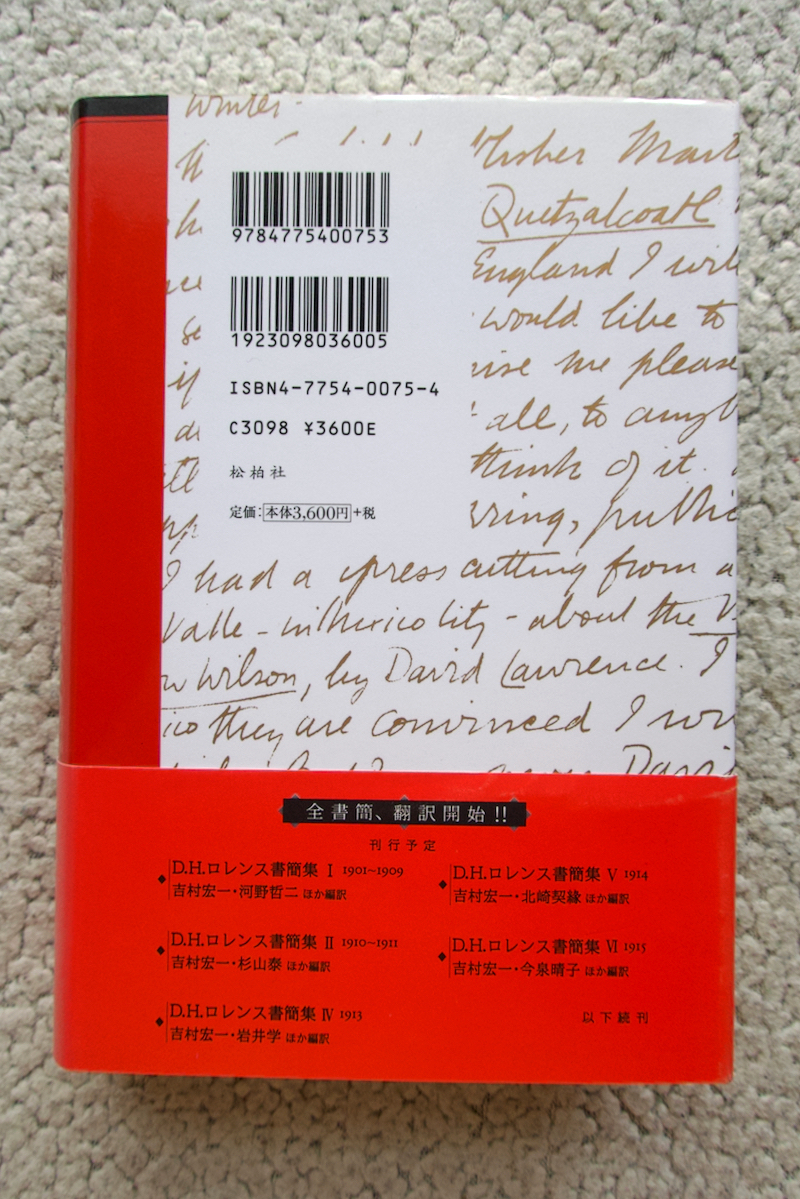 winter-
Mart
Quetzalcoatl
9784775400753
England I will
would like to
1923098036005
me please
ISBN4-7754-0075-4
all, to
C3098 ¥3600E
think of it.
松柏社
定価:本体3,600円+税
I had a press cutting from a
Valle - in Mexico City - about the
Wilson, by David Lawrence. I
they are convinced I
全書簡、翻訳開始!!
刊行予定
◆D.H.ロレンス書簡集 Ⅰ 1901~1909
吉村宏一・河野哲二 ほか編訳
◆D.H.ロレンス書簡集 Ⅱ 1910~1911
吉村宏一・杉山泰 ほか編訳
◆D.H.ロレンス書簡集 Ⅳ 1913
吉村宏一・岩井学 ほか編訳
◆D.H.ロレンス書簡集 Ⅴ 1914
吉村宏一・北崎契縁 ほか編訳
◆D.H.ロレンス書簡集 Ⅵ 1915
吉村宏一・今泉晴子 ほか編訳
以下続刊